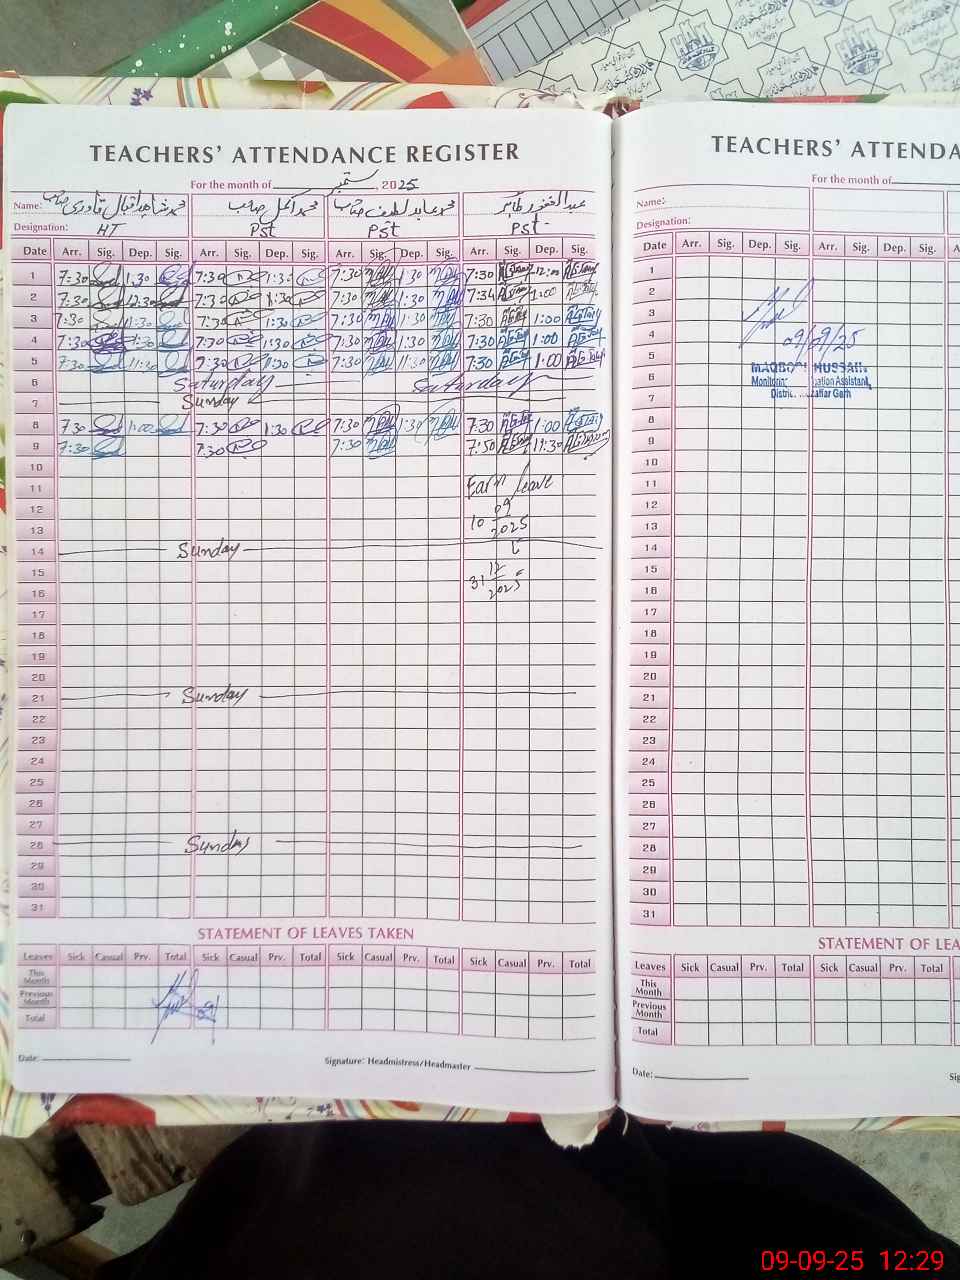 TEACHERS' ATTENDANCE REGISTER
For the month of ستمبر, 2025
Name: محمد شاہد اقبال قادری صاحب محمد اکمل صاحب محمد عابد لطیف صاحب عبدالغفور طاہر
Designation: HT PST PST PST
Date Arr. Sig. Dep. Sig. Arr. Sig. Dep. Sig. Arr. Sig. Dep. Sig. Arr. Sig. Dep. Sig.
1 7:30 1:30 7:30 1:30 7:30 1:30 7:30 12:00
2 7:30 12:30 7:30 1:30 7:30 1:30 7:34 1:00
3 7:30 11:30 7:30 1:30 7:30 1:30 7:30 1:00
4 7:30 1:30 7:30 1:30 7:30 1:30 7:30 1:00
5 7:30 11:30 7:30 1:30 7:30 11:30 7:30 1:00
6 Saturday Saturday
7 Sunday
8 7:30 1:00 7:30 1:30 7:30 1:30 7:30 1:00
9 7:30 7:30 7:30 7:50 11:30
10
11 Earn leave
12 09
13 10 2025
14 Sunday
15 12
16 31 2025
17
18
19
20
21 Sunday
22
23
24
25
26
27
28 Sunday
29
30
31
STATEMENT OF LEAVES TAKEN
Leaves Sick Casual Prv. Total Sick Casual Prv. Total Sick Casual Prv. Total Sick Casual Prv. Total
This Month
Previous Month
Total
Date:
Signature: Headmistress/Headmaster
TEACHERS' ATTENDA
For the month of
Name:
Designation:
Date Arr. Sig. Dep. Sig. Arr. Sig. Dep. Sig.
1
2
3
4 09/09/25
5
6 MAQBOOL HUSSAIN
Monitoring Evaluation Assistant
District Muzaffar Garh
7
8
9
10
11
12
13
14
15
16
17
18
19
20
21
22
23
24
25
26
27
28
29
30
31
STATEMENT OF LEA
Leaves Sick Casual Prv. Total Sick Casual Prv. Total
This Month
Previous Month
Total
Date:
Sig
09-09-25 12:29